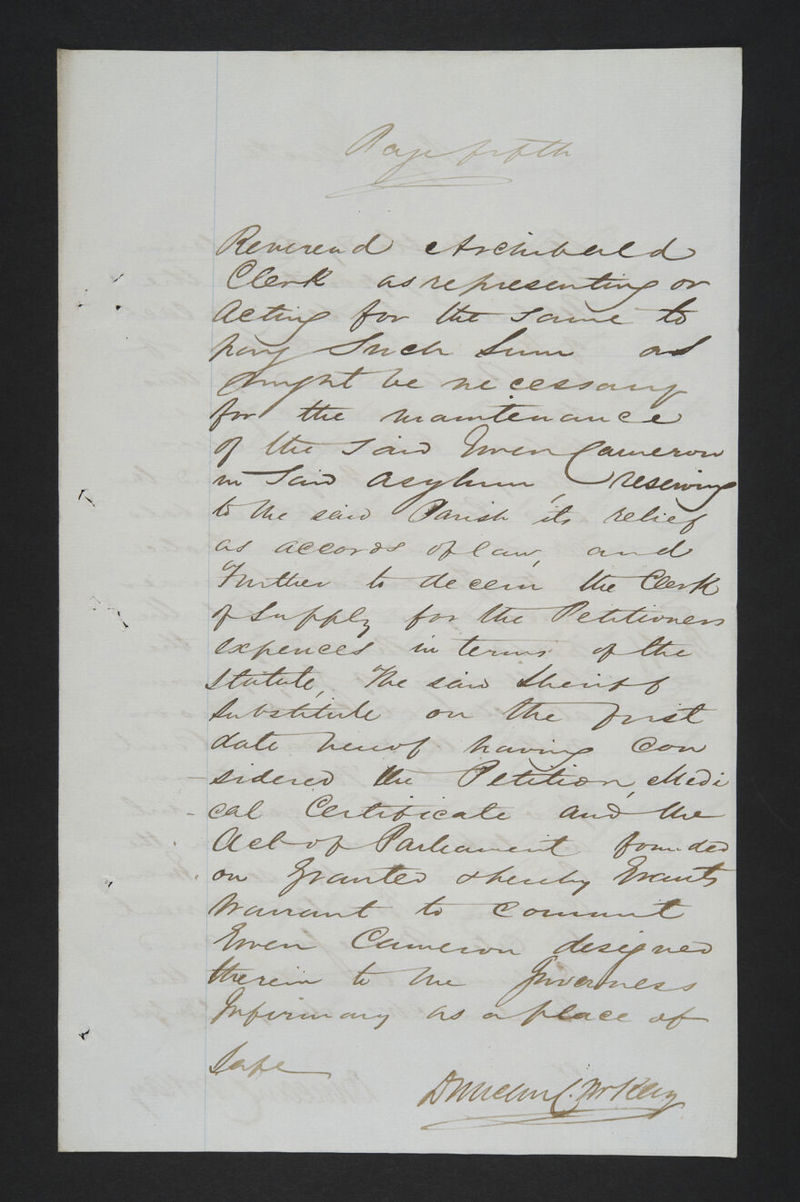 Page fifth
Reverend Archibald
Clerk as representing or
Acting for the same to
pay Such Sum as
might be necessary
for the maintenance
of the said Ewen Cameron
in Said Asylum, reserving
to the said Parish its relief
as accords of law, and
Further to decern the Clerk
of Supply for the Petitioners
expences in terms of the
Statute, The said Sheriff
Substitute on the first
date hereof having Con
sidered the Petition, Medi
cal Certificate and the
Act of Parliament founded
on Granted & hereby Grants
Warrant to commit
Ewen Cameron designed
therein to the Inverness
Infirmary as a place of
Safe
Duncan C.